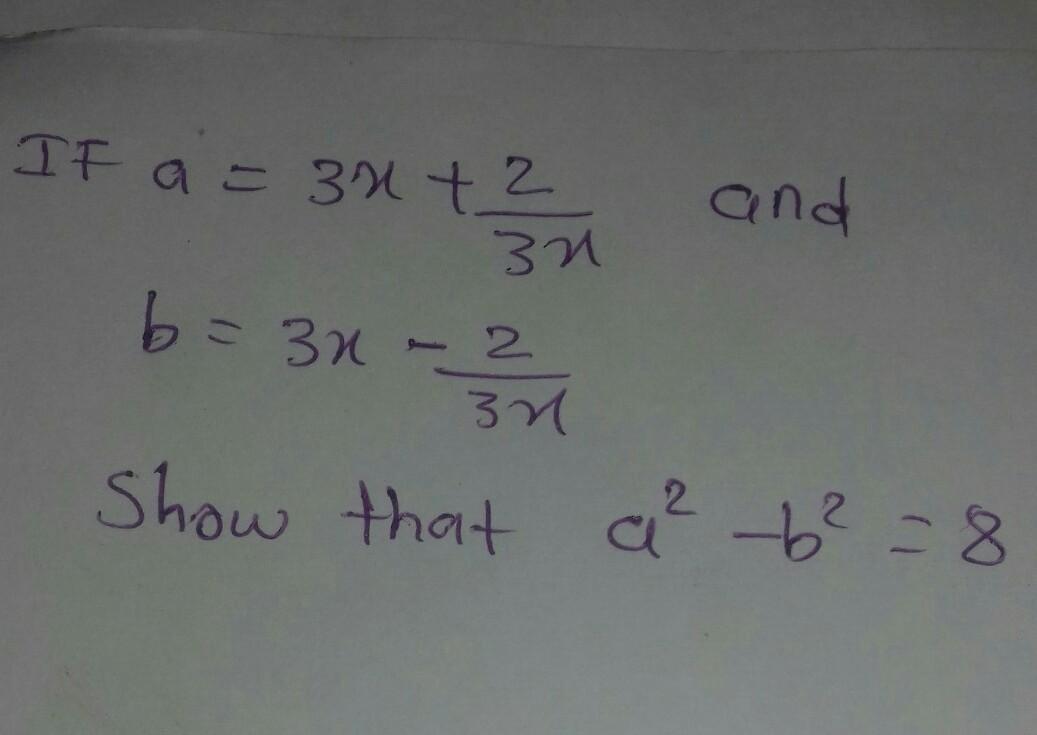 IF a = 3x + 2/3x and
b = 3x - 2/3x
Show that a² - b² = 8